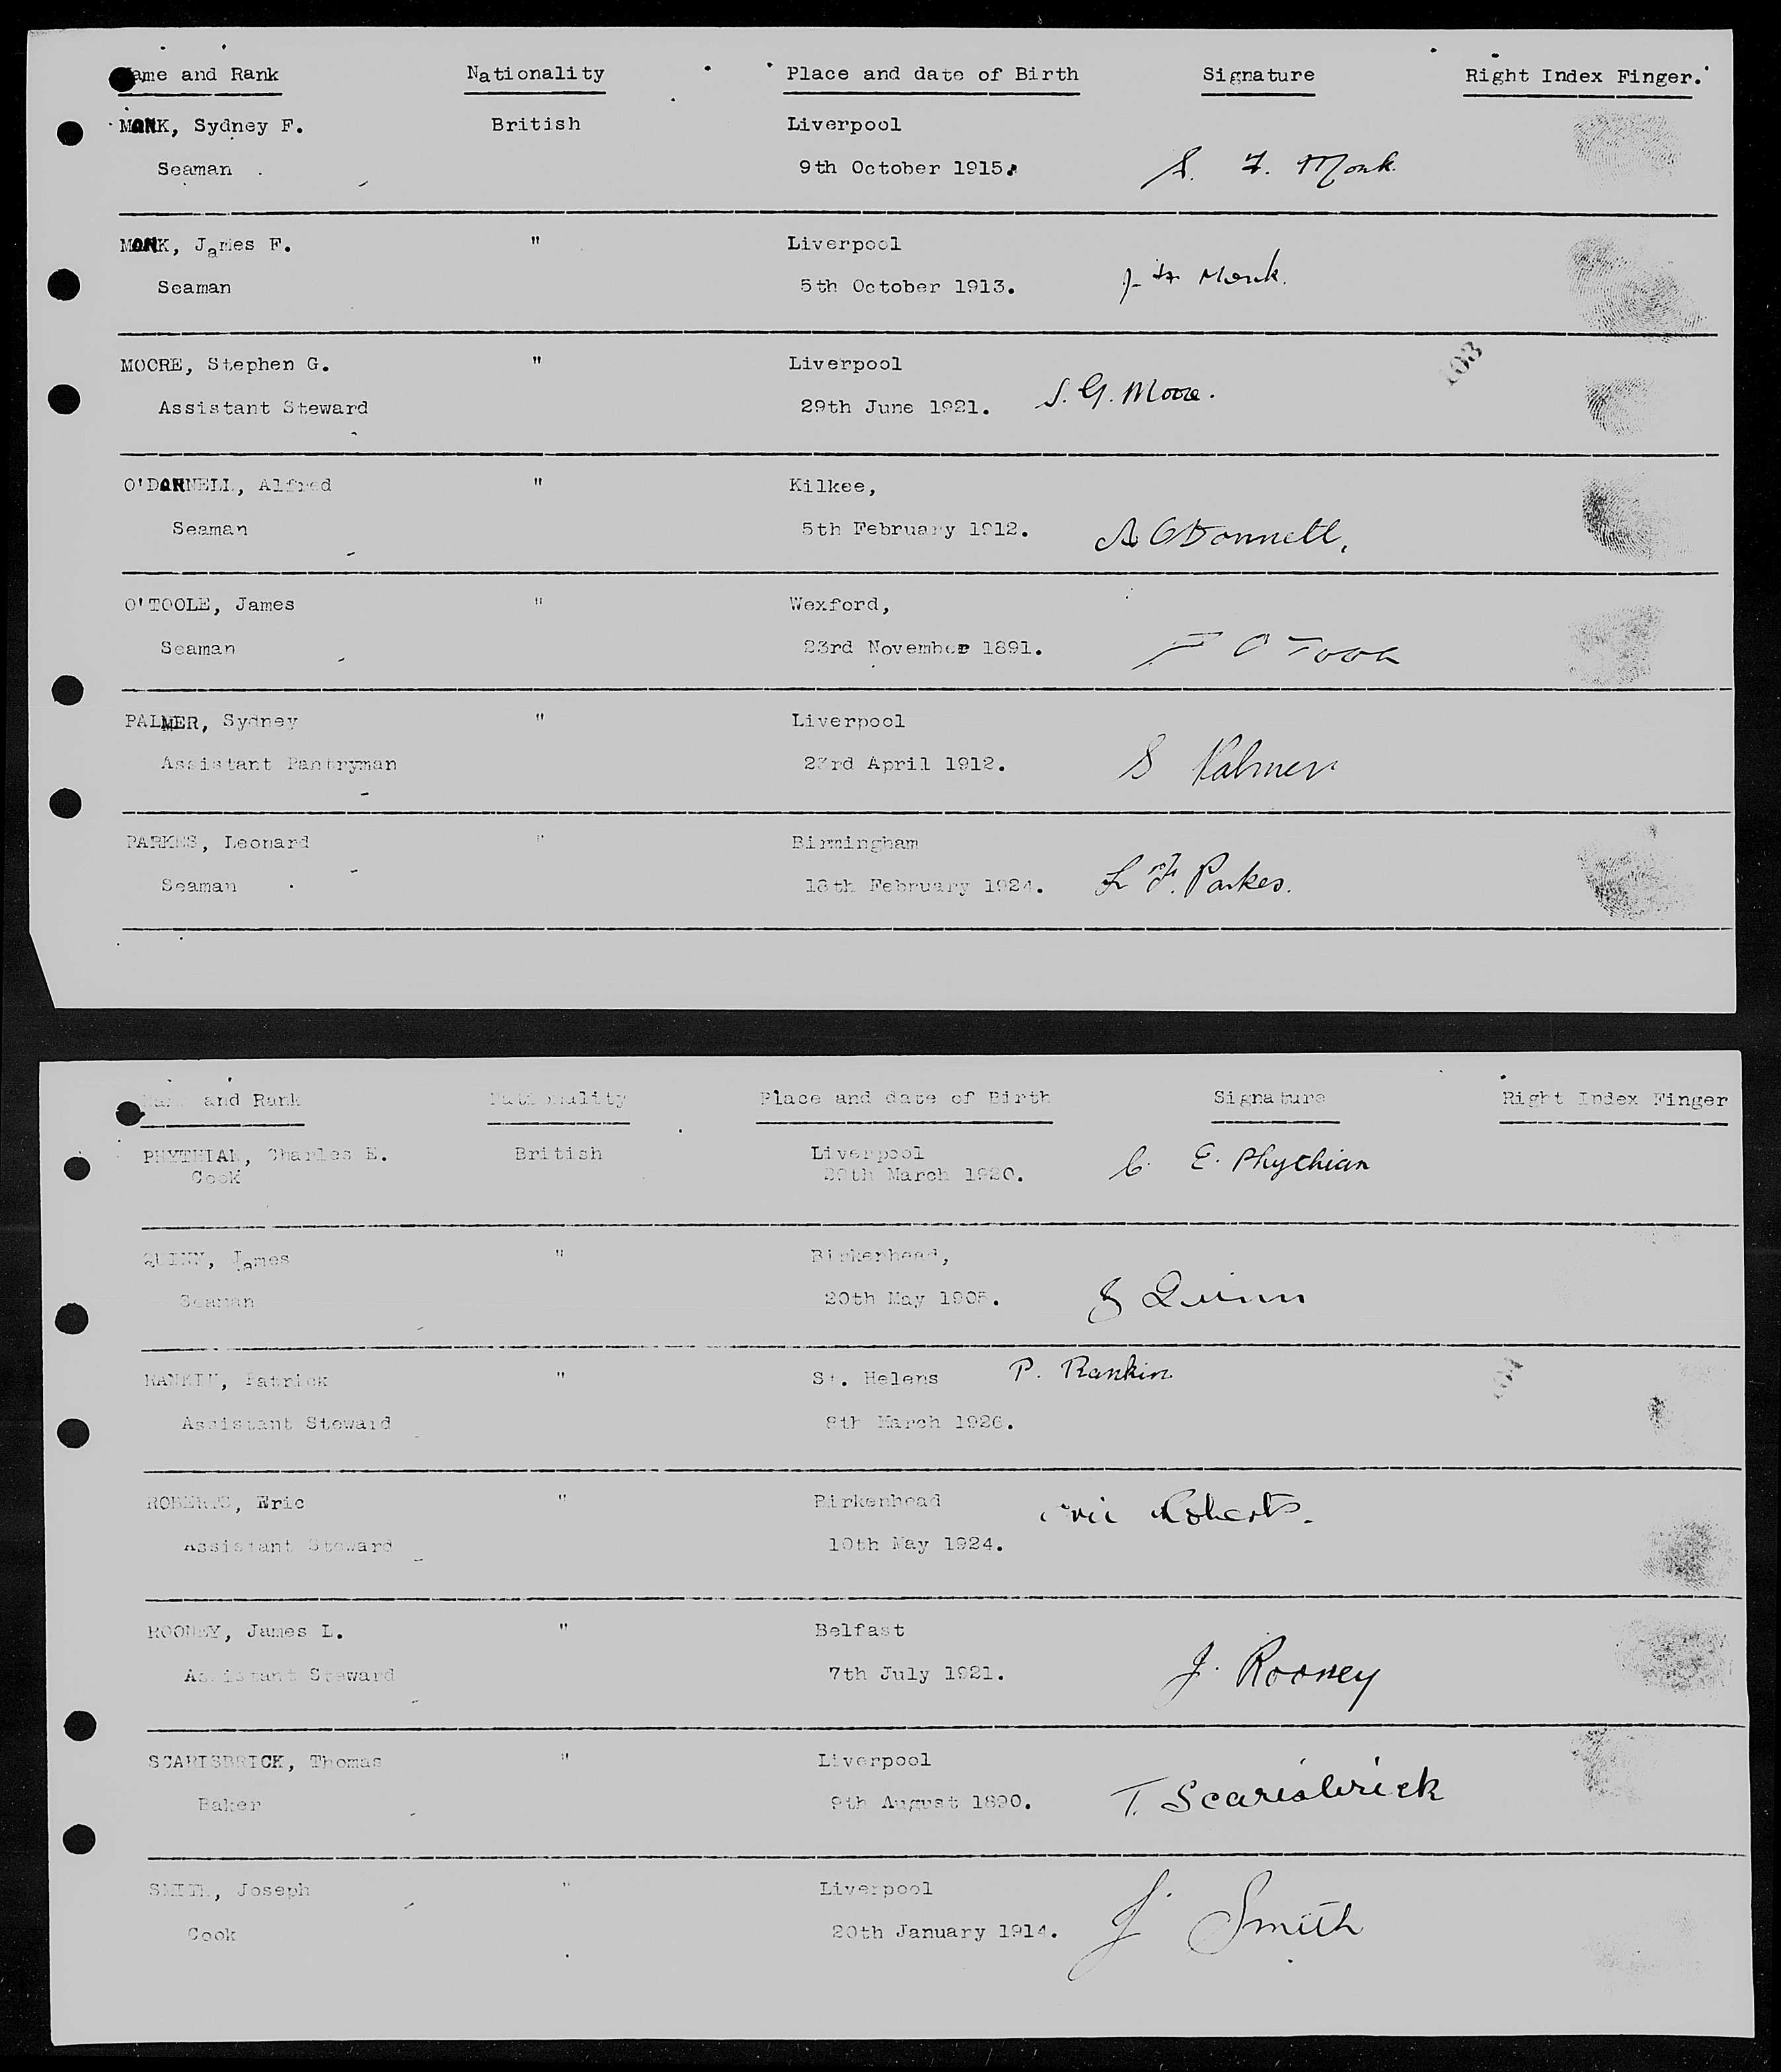 Name and Rank Nationality Place and date of Birth Signature Right Index Finger.
MONK, Sydney F. British Liverpool
Seaman 9th October 1915. S. F. Monk.
MONK, James F. " Liverpool
Seaman 5th October 1913. J. F. Monk.
MOORE, Stephen G. " Liverpool 103
Assistant Steward 29th June 1921. S. G. Moore.
O'DONNELL, Alfred " Kilkee,
Seaman 5th February 1912. A O'Donnell,
O'TOOLE, James " Wexford,
Seaman 23rd November 1891. J O Toole
PALMER, Sydney " Liverpool
Assistant Pantryman 23rd April 1912. S Palmer
PARKES, Leonard " Birmingham
Seaman 18th February 1924. L F. Parkes.
Name and Rank Nationality Place and date of Birth Signature Right Index Finger
PHYTHIAN, Charles E. British Liverpool C. E. Phythian
Cook 29th March 1920.
QUINN, James " Birkenhead,
Seaman 20th May 1905. J Quinn
RANKIN, Patrick " St. Helens P. Rankin 104
Assistant Steward 8th March 1926.
ROBERTS, Eric " Birkenhead Eric Roberts.
Assistant Steward 10th May 1924.
ROONEY, James L. " Belfast
Assistant Steward 7th July 1921. J. Rooney
SCARISBRICK, Thomas " Liverpool
Baker 9th August 1890. T. Scarisbrick
SMITH, Joseph " Liverpool
Cook 20th January 1914. J. Smith